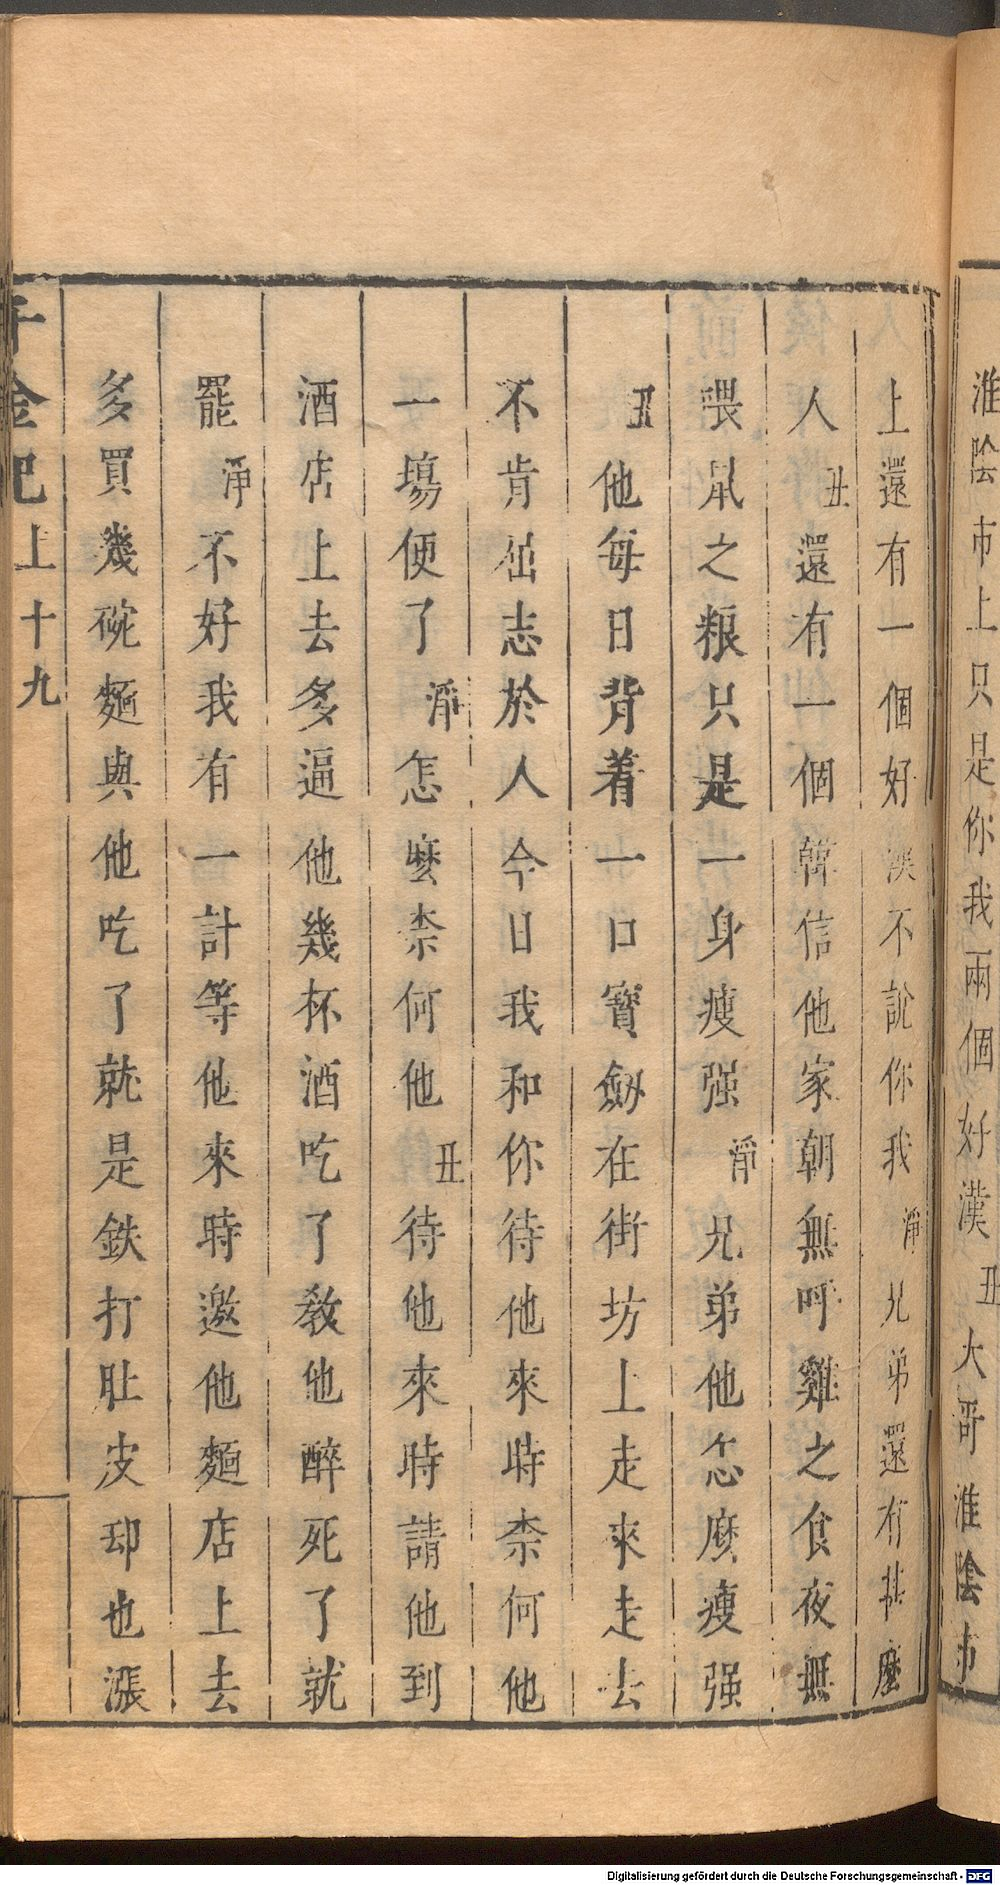 淮陰市上只是你我兩個好漢丑大哥淮陰市
上還有一個好漢不說你我淨兄弟還有甚麼
人丑還有一個韓信他家朝無呼雞之食夜無
喂䑕之粮只是一身瘦强淨兄弟他怎麽瘦强
丑他每日背着一口寶劔在街坊上走來走去
不肯屈志於人今日我和你待他來時柰何他
一塲便了淨怎麽柰何他丑待他來時請他到
酒店上去多逼他幾杯酒吃了教他醉死了就
罷淨不好我有一計等他來時邀他麵店上去
多買幾碗麵與他吃了就是鉄打肚皮却也漲
千金記上十九
Digitalisierung gefördert durch die Deutsche Forschungsgemeinschaft - DFG